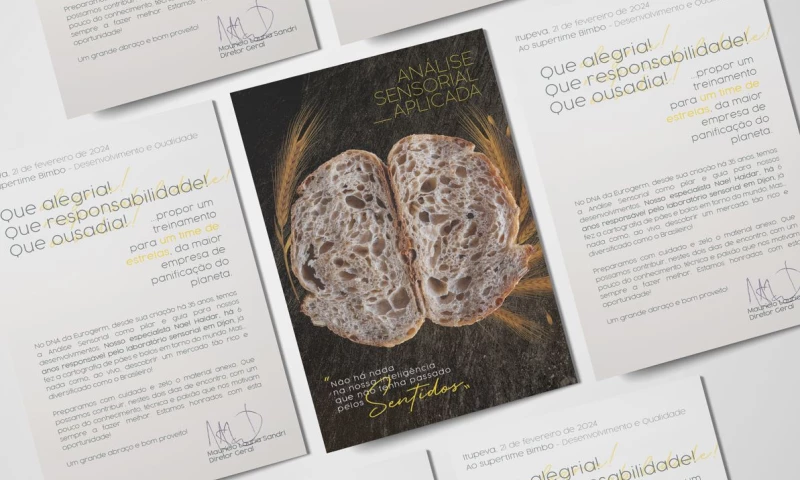 possamos contribuir
pouco do conhecimento técni
sempre a fazer melhor. Estamos
oportunidade!
Um grande abraço e bom proveito!
Diretor Geral
ANÁLISE
SENSORIAL
__APLICADA
"Não há nada
na nossa inteligência
que não tenha passado
pelos Sentidos"
Itupeva, 21 de fevereiro de 2024
Ao supertime Bimbo - Desenvolvimento e Qualidade
Que alegria!
Que responsabilidade!
Que ousadia!
...propor um
treinamento
para um time de
estrelas, da maior
empresa de
panificação do
planeta.
No DNA da Eurogerm, desde sua criação há 35 anos temos
a Análise Sensorial como pilar e guia para nossos
desenvolvimentos. Nosso especialista Nael Haidar, há 6
anos responsável pelo laboratório sensorial em Dijon, já
fez a cartografia de pães e bolos em torno do mundo. Mas...
nada como, ao vivo, descobrir um mercado tão rico e
diversificado como o Brasileiro!
Preparamos com cuidado e zelo o material anexo. Que
possamos contribuir, nestes dois dias de encontro, com um
pouco do conhecimento técnico e paixão que nos motivam
sempre a fazer melhor. Estamos honrados com esta
oportunidade!
Um grande abraço e bom proveito!
Diretor Geral
21 de fevereiro de 2024
supertime Bimbo - Desenvolvimento e Qualidade
Que alegria!
Que responsabilidade!
Que ousadia!
...propor um
treinamento
para um time de
estrelas, da maior
empresa de
panificação do
planeta.
No DNA da Eurogerm, desde sua criação há 35 anos temos
a Análise Sensorial como pilar e guia para nossos
desenvolvimentos. Nosso especialista Nael Haidar, há 6
anos responsável pelo laboratório sensorial em Dijon, já
fez a cartografia de pães e bolos em torno do mundo. Mas...
nada como, ao vivo, descobrir um mercado tão rico e
diversificado como o Brasileiro!
Preparamos com cuidado e zelo o material anexo. Que
possamos contribuir, nestes dois dias de encontro, com um
pouco do conhecimento técnico e paixão que nos motivam
sempre a fazer melhor. Estamos honrados com esta
oportunidade!
Um grande abraço e bom proveito!
Diretor Geral
Itupeva, 21 de fevereiro de 2024
Ao supertime Bimbo - Desenvolvimento e Qualidade
alegria!